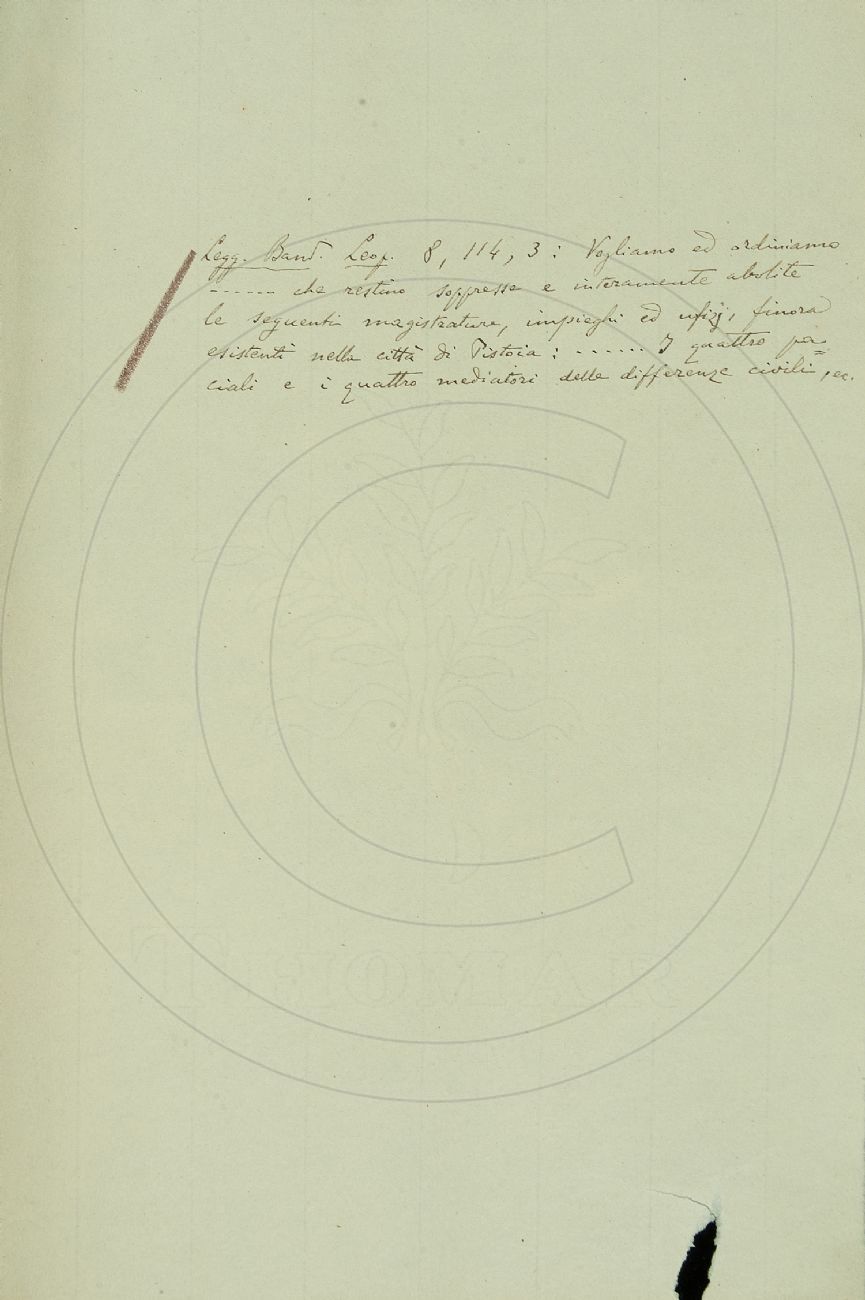 Legg. Band. Leop. 8, 114, 3: Vogliamo ed ordiniamo
...... che restino soppresse e interamente abolite
le seguenti magistrature, impieghi ed ufizj, finora
esistenti nella città di Pistoia: ...... I quattro pa=
ciali e i quattro mediatori delle differenze civili, ec.